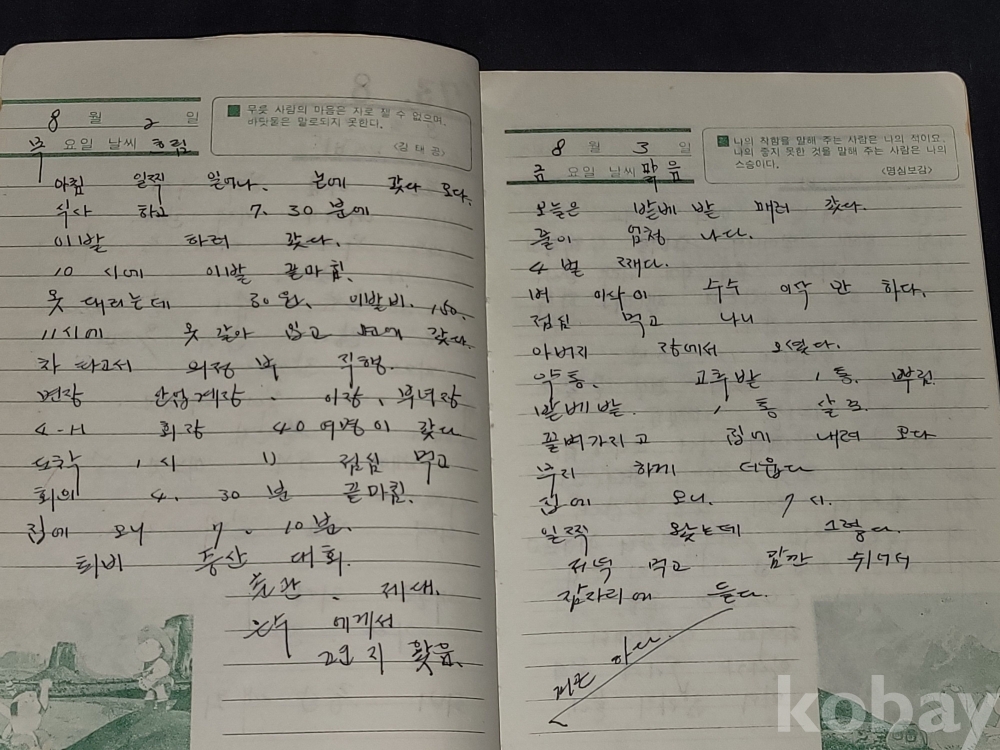 8 월 2 일
무릇 사람의 마음은 자로 잴 수 없으며,
바닷물은 말로되지 못한다.
〈김 태 공〉
목 요일 날씨 흐림
아침 일찍 일어나. 논에 갔다 오다.
식사 하고 7. 30 분에
이발 하러 갔다.
10 시에 이발 끝마침.
옷 대리는데 30원. 이발비. 150.
11시에 옷 갈아 입고 갔다.
차 타고서 의정부 직행.
면장 산업계장. 이장, 부녀장
4-H 회장 40 여명이 갔다
도착 1시 11 점심 먹고
회의 4. 30 분 끝마침.
집에 오니 7. 10분.
퇴비 증산 대회.
제대.
에게서
편지 왔음.
8 월 3 일
나의 착함을 말해 주는 사람은 나의 적이요,
나의 좋지 못한 것을 말해 주는 사람은 나의
스승이다.
〈명심보감〉
금 요일 날씨 맑음
오늘은 밭베 밭 매러 갔다.
풀이 엄청 나다.
4 벌 째다.
벼 이삭이 수수 이삭 만 하다.
점심 먹고 나니
아버지 장에서 오셨다.
약통. 고추밭 1 통. 뿌림.
밭베밭. 1 통 살포.
끝내가지고 집에 내려 오다
무지 하게 더웁다
집에 오니. 7 시.
일찍 왔는데 그렇다.
저녁 먹고 잠깐 쉬어서
잠자리에 든다.
피곤 하다.
kobay